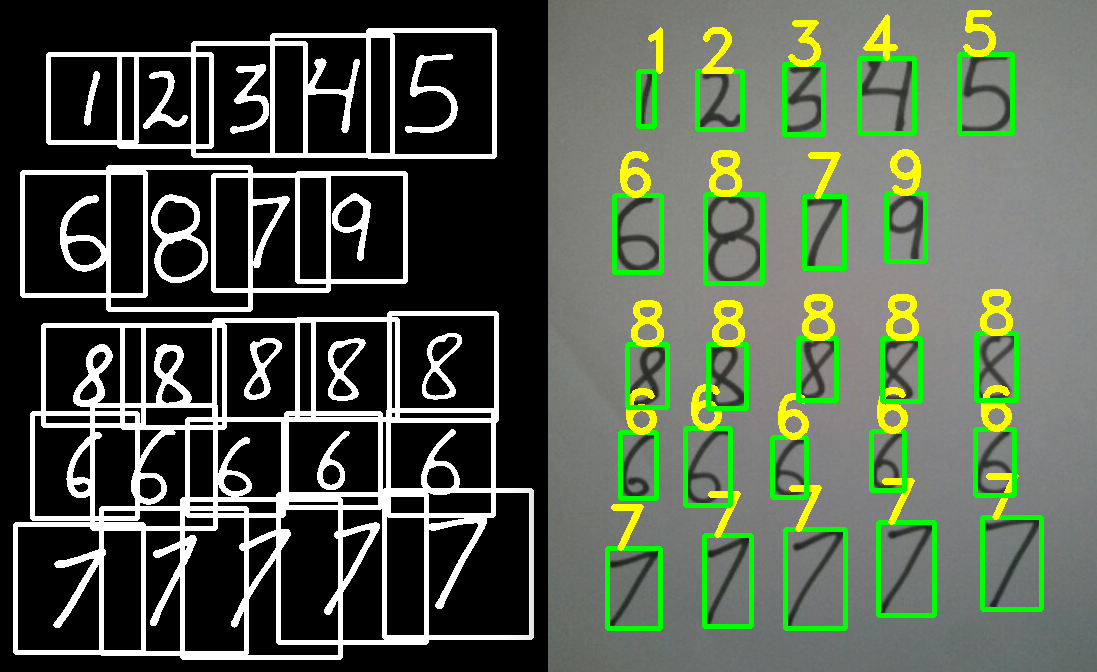 1 2 3 4 5
6 8 7 9
8 8 8 8 8
6 6 6 6 6
7 7 7 7 7
1 2 3 4 5
1 2 3 4 5
6 8 7 9
6 8 7 9
8 8 8 8 8
8 8 8 8 8
6 6 6 6 6
6 6 6 6 6
7 7 7 7 7
7 7 7 7 7